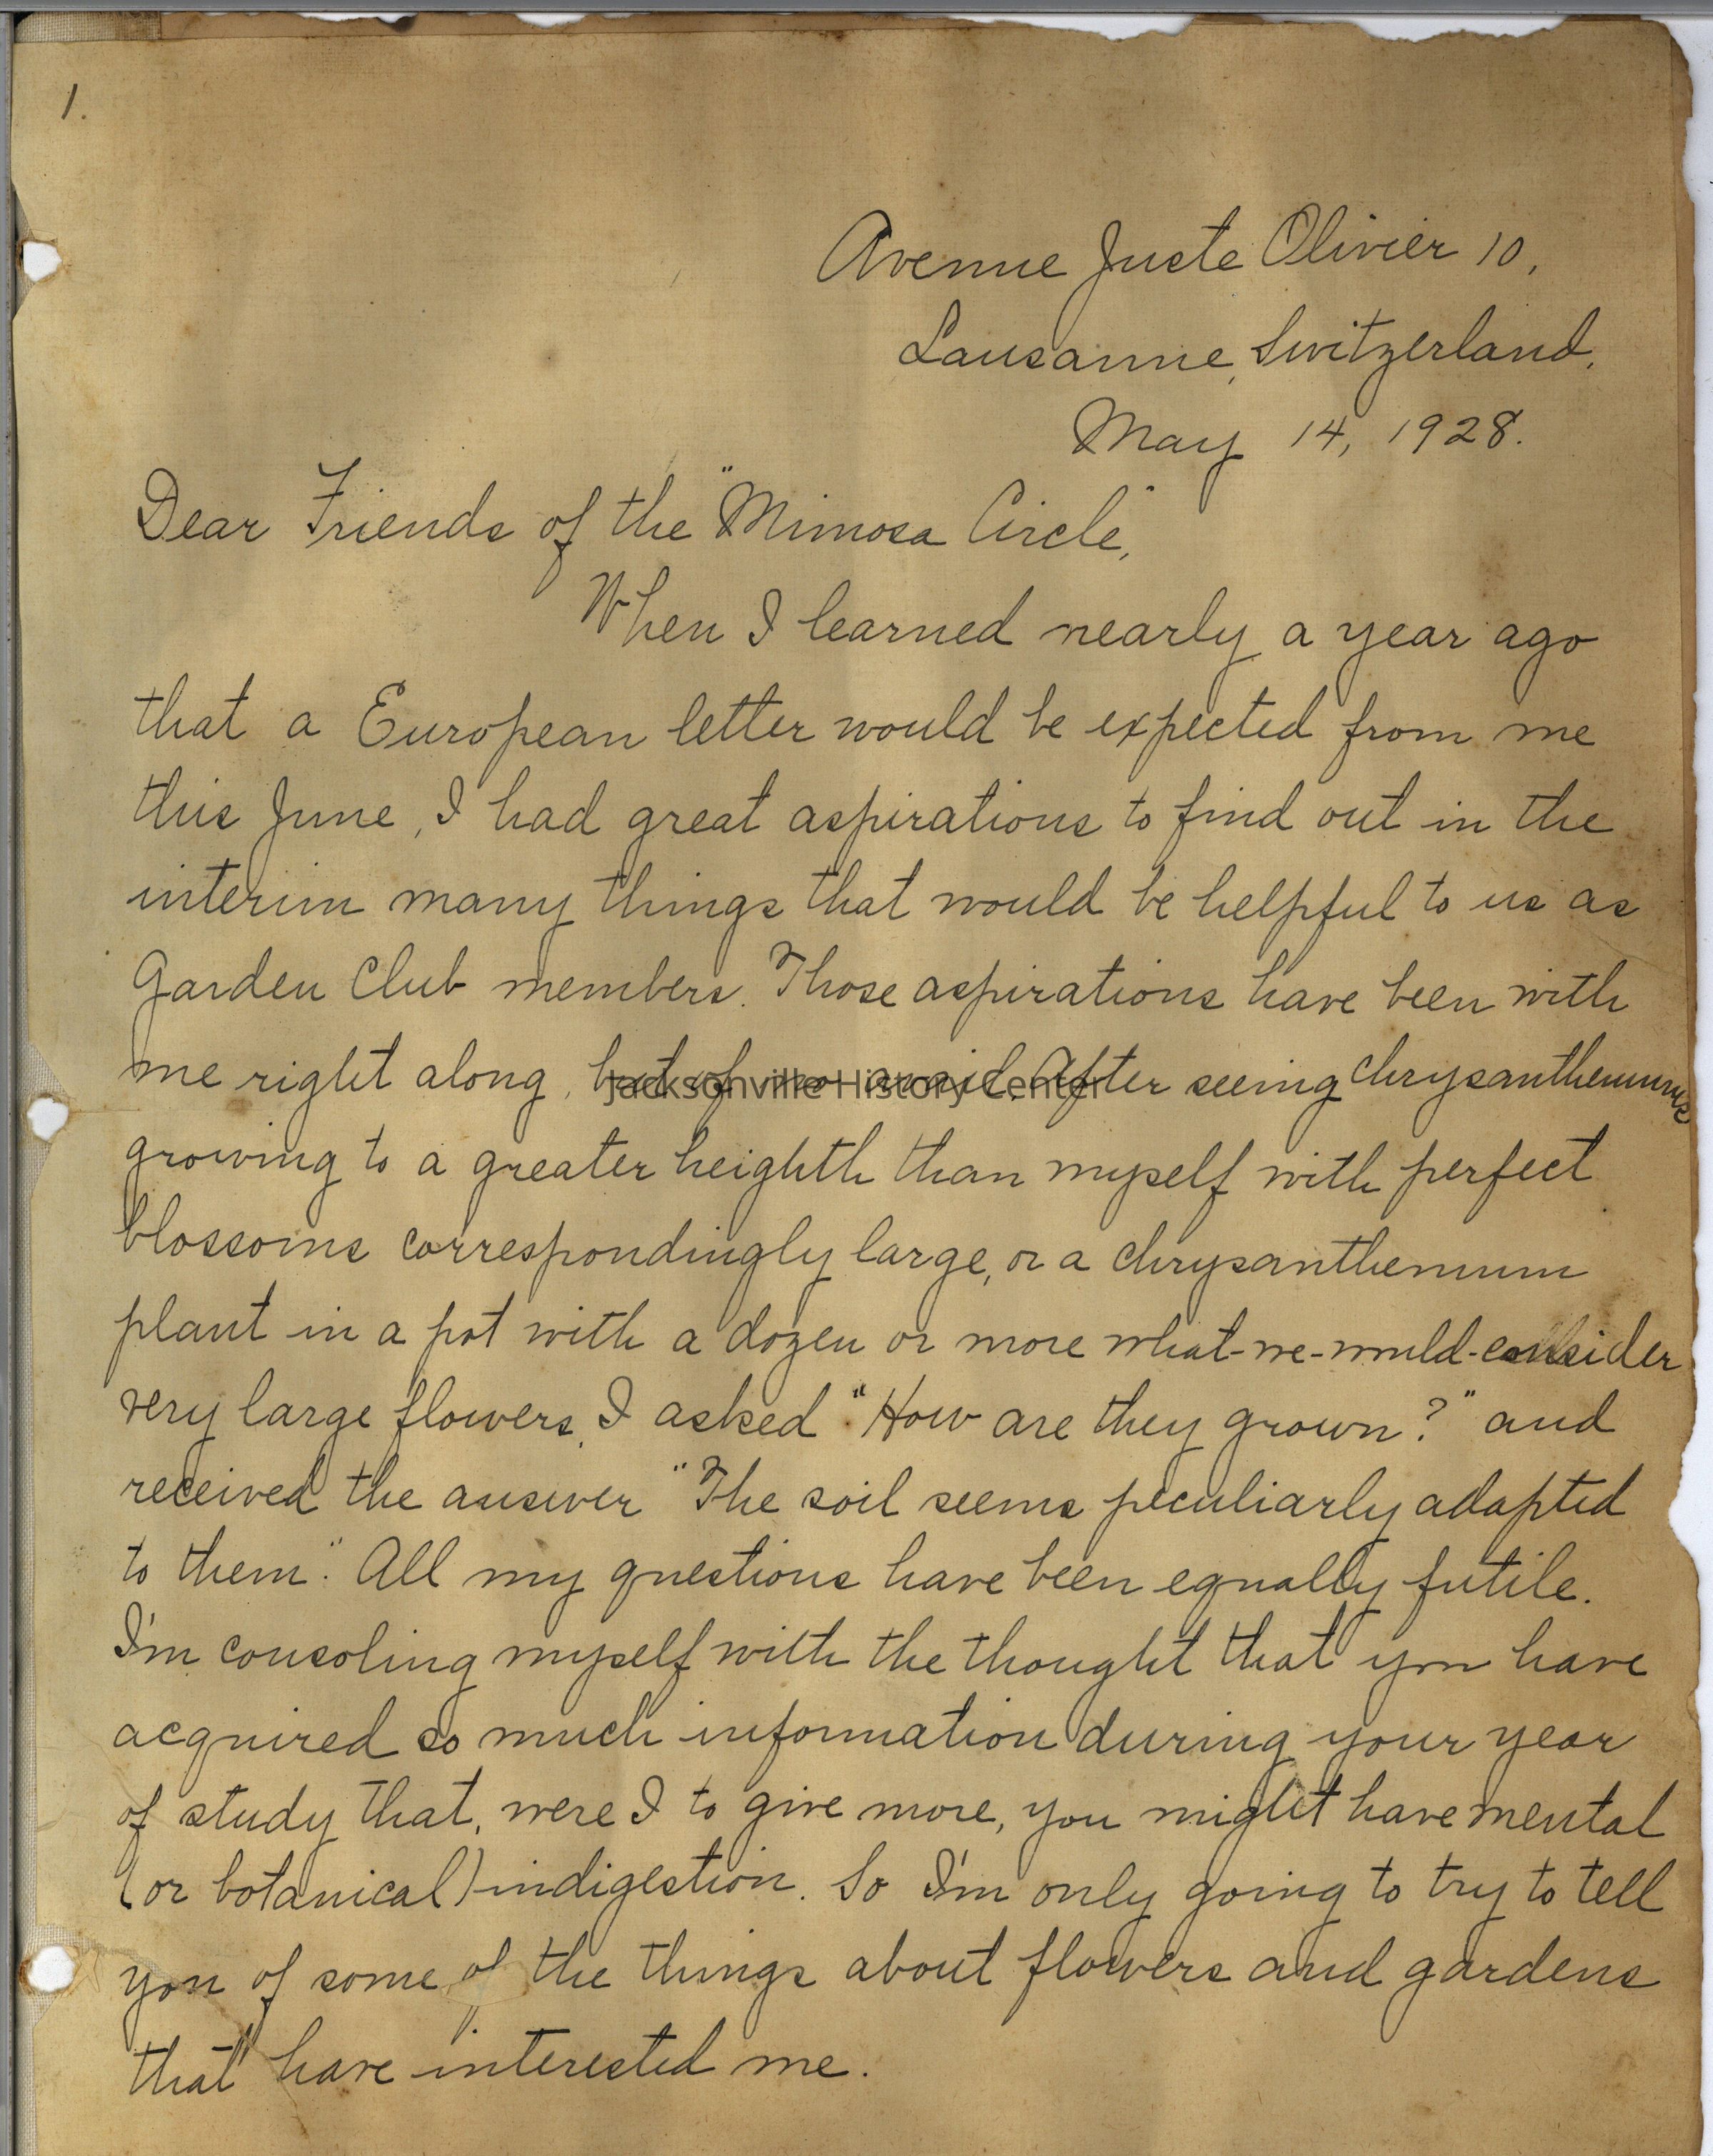 1.
Avenue Juste Olivier 10,
Lausanne, Switzerland.
May 14, 1928.
Dear Friends of the "Mimosa Circle",
When I learned nearly a year ago
that a European letter would be expected from me
this June, I had great aspirations to find out in the
interim many things that would be helpful to us as
Garden Club members. Those aspirations have been with
me right along, but of no avail. After seeing chrysanthemums
Jacksonville History Center
growing to a greater heighth than myself with perfect
blossoms correspondingly large, or a chrysanthemum
plant in a pot with a dozen or more what-we-would-consider
very large flowers, I asked "How are they grown?" and
received the answer "The soil seems peculiarly adapted
to them". All my questions have been equally futile.
I'm consoling myself with the thought that you have
acquired so much information during your year
of study that, were I to give more, you might have mental
(or botanical) indigestion. So I'm only going to try to tell
you of some of the things about flowers and gardens
that have interested me.